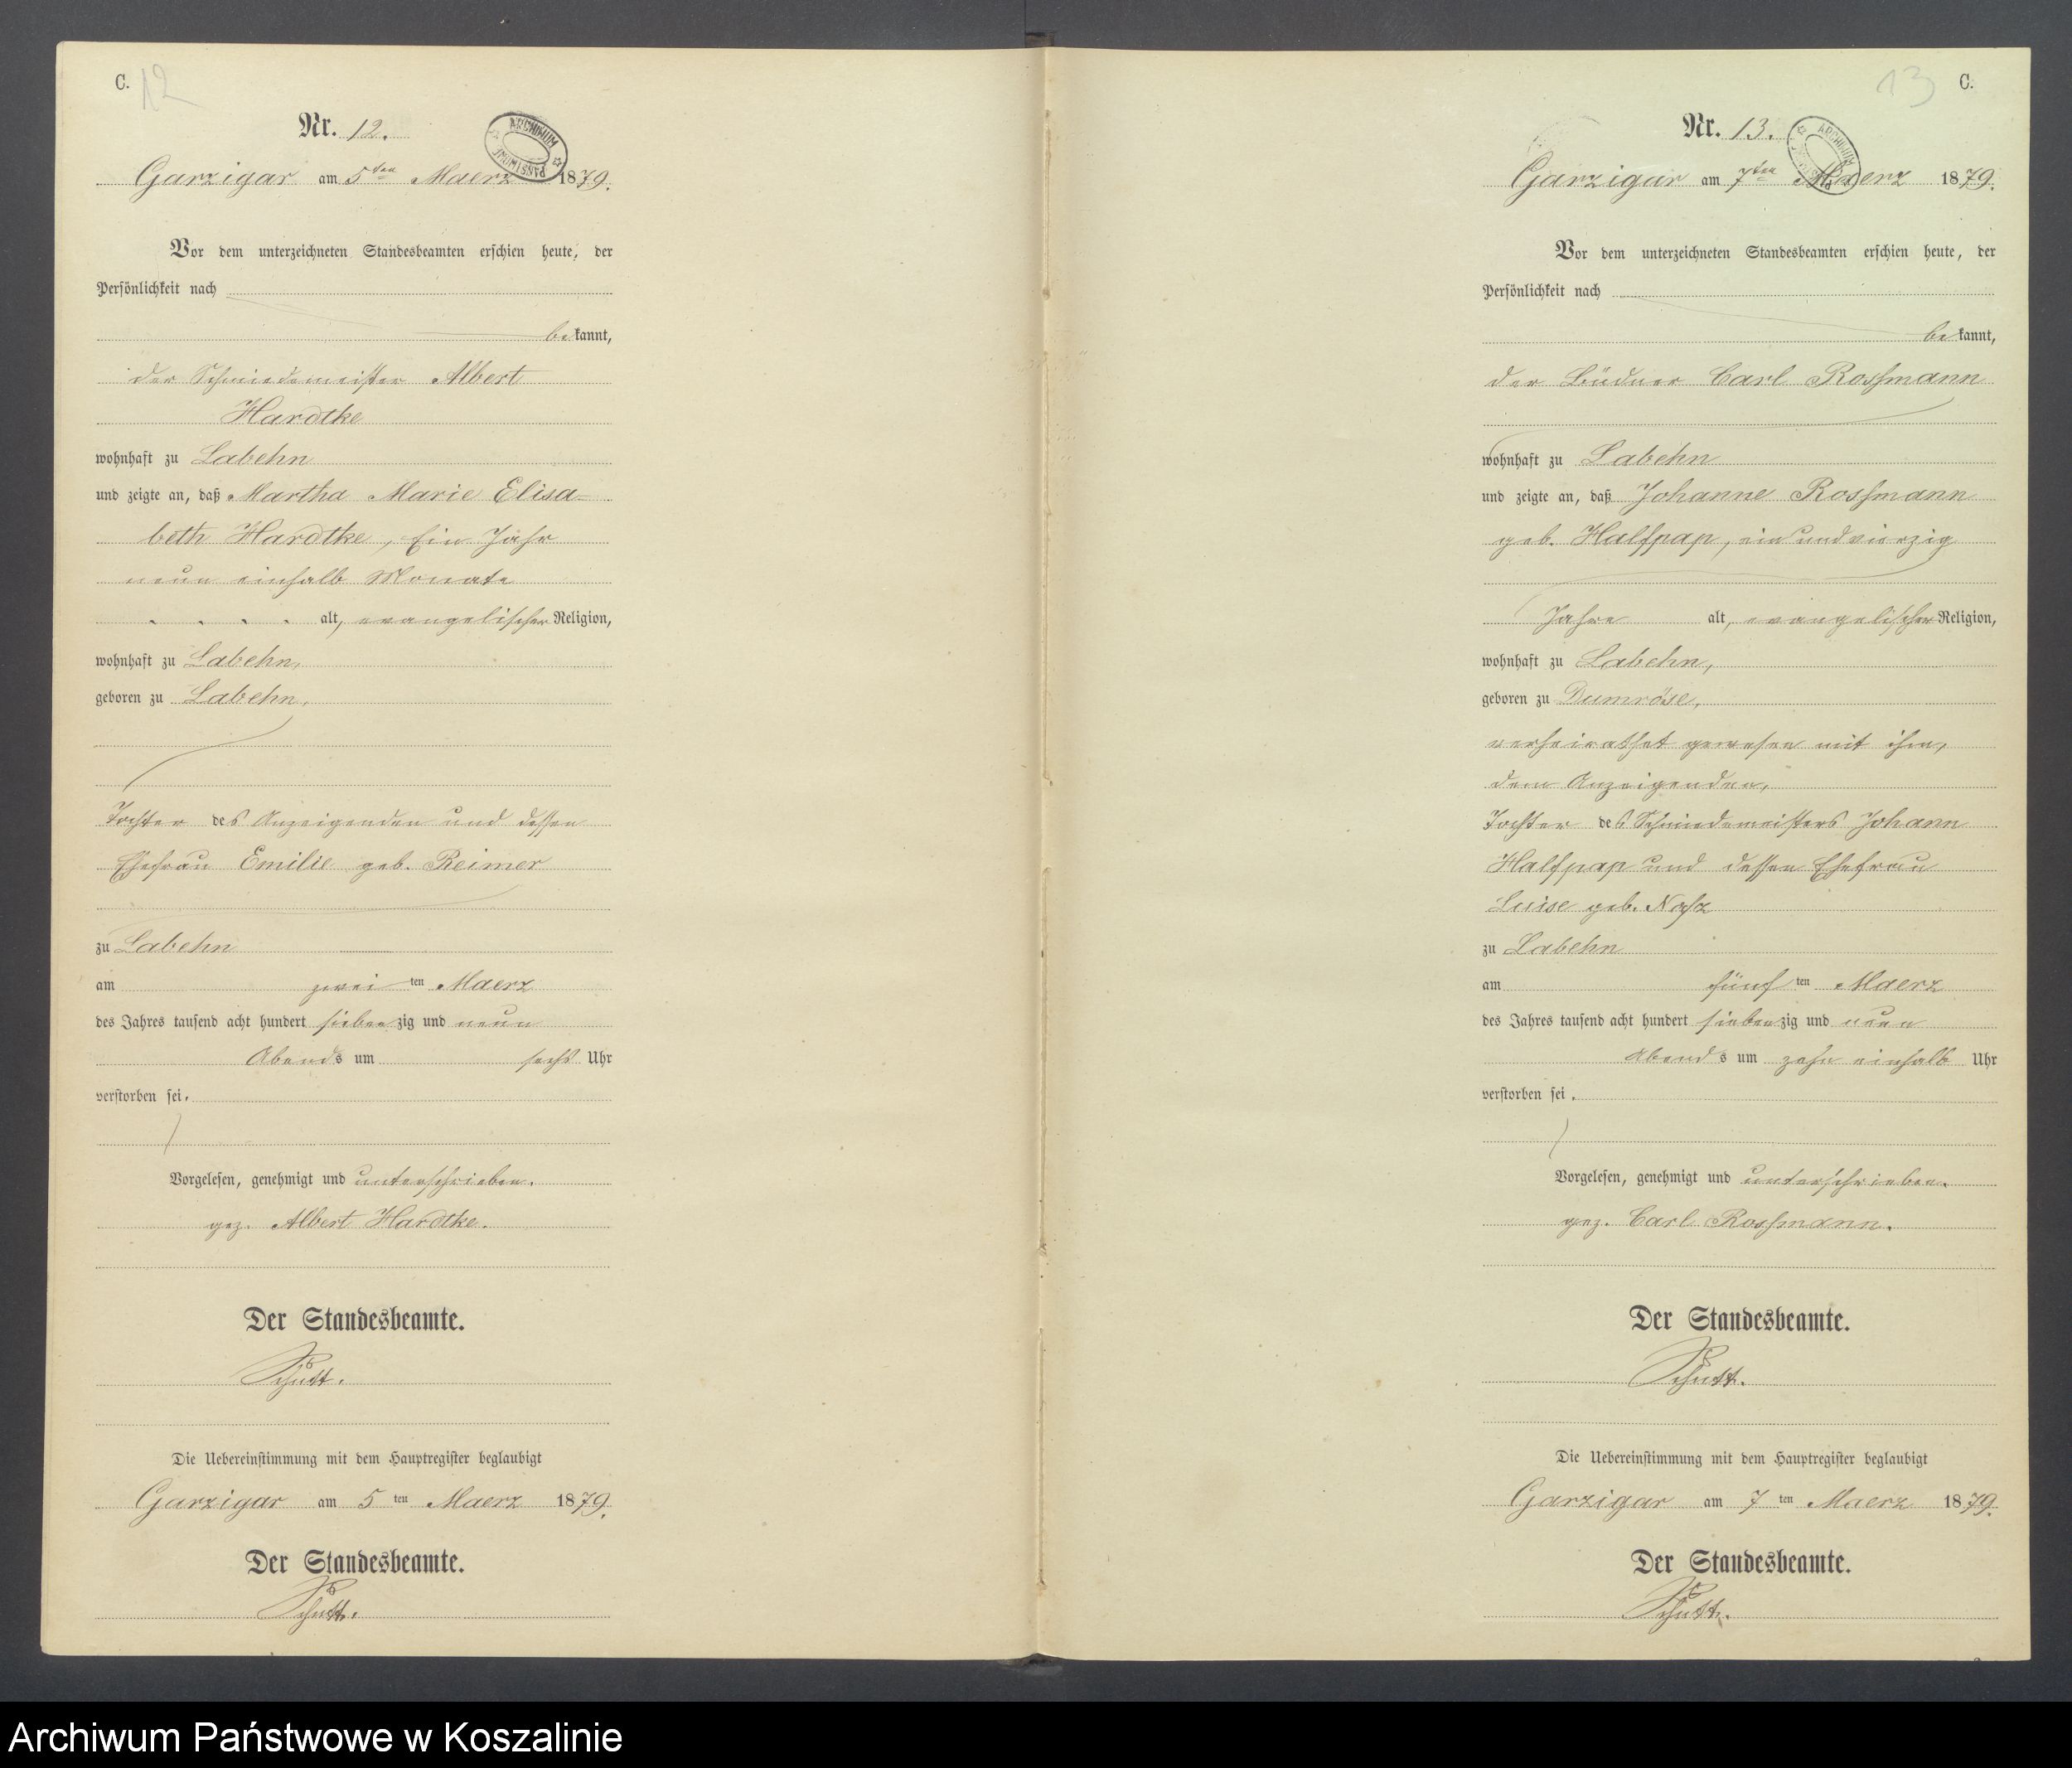 C. 12
Nr. 12.
ARCHIWUM PAŃSTWOWE
Garzigar am 5ten Maerz 1879.
Vor dem unterzeichneten Standesbeamten erschien heute, der
Persönlichkeit nach
bekannt,
der Schmiedemeister Albert
Hardtke
wohnhaft zu Labehn
und zeigte an, daß Martha Marie Elisa-
beth Hardtke, Ein Jahr
neun einhalb Monate
alt, evangelischer Religion,
wohnhaft zu Labehn,
geboren zu Labehn,
Tochter des Anzeigenden und dessen
Ehefrau Emilie geb. Reimer
zu Labehn
am zwei ten Maerz
des Jahres tausend acht hundert siebenzig und neun
Abends um sechs Uhr
verstorben sei.
Vorgelesen, genehmigt und unterschrieben.
gez. Albert Hardtke.
Der Standesbeamte.
Schütt.
Die Uebereinstimmung mit dem Hauptregister beglaubigt
Garzigar am 5 ten Maerz 1879.
Der Standesbeamte.
Schütt.
13 C.
Nr. 13.
Garzigar am 7ten Maerz 1879.
Vor dem unterzeichneten Standesbeamten erschien heute, der
Persönlichkeit nach
bekannt,
der Büdner Carl Rossmann
wohnhaft zu Labehn
und zeigte an, daß Johanne Rossmann
geb. Halfpap, ein und vierzig
Jahre alt, evangelischer Religion,
wohnhaft zu Labehn,
geboren zu Dumröse,
verheirathet gewesen mit ihm,
dem Anzeigenden,
Tochter des Schmiedemeisters Johann
Halfpap und dessen Ehefrau
Luise geb.
zu Labehn
am fünf ten Maerz
des Jahres tausend acht hundert siebenzig und neun
Abends um zehn einhalb Uhr
verstorben sei.
Vorgelesen, genehmigt und unterschrieben.
gez. Carl Rossmann.
Der Standesbeamte.
Schütt.
Die Uebereinstimmung mit dem Hauptregister beglaubigt
Garzigar am 7 ten Maerz 1879.
Der Standesbeamte.
Schütt.
Archiwum Państwowe w Koszalinie